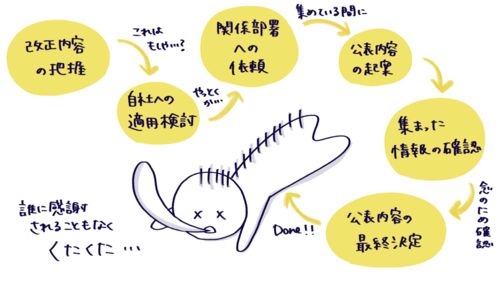 改正内容
の把握
これは
もしや…?
自社への
適用検討
やっとく
か…
関係部署
への
依頼
集めている間に
公表内容
の起案
集まった
情報の確認
念のため確認
公表内容の
最終決定
Done!!
誰に感謝
されることもなく
くたくた…